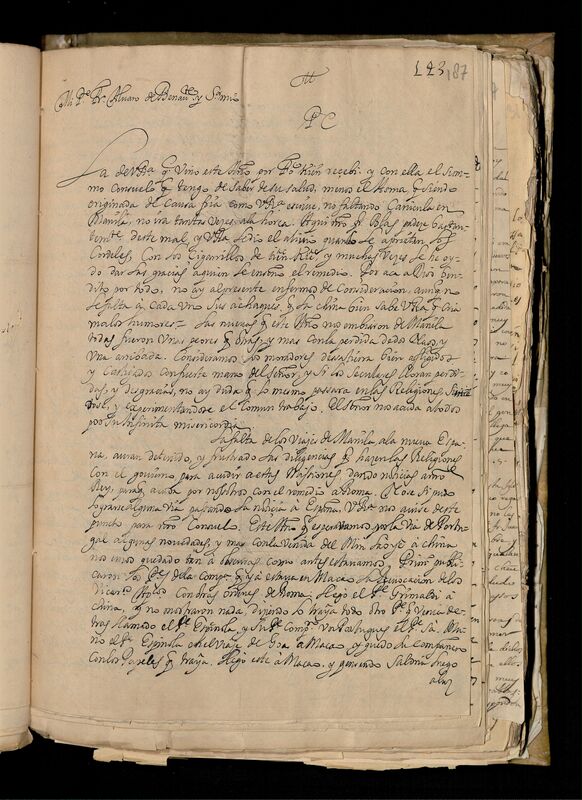 143 187
M
Mi Pe. Fr. Alvaro de Benavte. y Sr. mio
PC
La de V Ra. q. vino este Año por recebi. y con ella el
mo Consuelo q. tengo de saber de su salud, menos el Asma q. siendo
originada de Causa fria como V Ra. escrive, no faltando Canicula en
Manila, no ira tantas veces a la horca. Aqui nro. Fr. Blas padeze bastan-
temte. deste mal, y Vtta. le dio el alivio quando le aprietan los
Cordeles, Con los Cigarrillos de y muchas veces le he oy-
do dar las gracias a quien le enseño el remedio. Por aca a Dios ben-
dito por todo, no ay al presente enfermos de Consideracion, aunq. no
le falta a Cada uno sus achaques, q. la china bien sabe V Ra. q. Cria
malos humores. Las nuevas q. este Año nos embiaron de Manila
todas fueron unas peores q. otras, y mas con la perdida de dos Naos, y
una arribada. Consideramos los moradores de essa tierra bien afligidos
y Castigados con fuerte mano del Señor, y si los seculares lloran perdi-
das, y desgracias, no ay duda q. lo mismo passara en las Religiones
dose, y experimentandose el Comun trabajo. El Señor nos acuda a todos
por su Infinita misericordia.
La falta de los viajes de Manila a la nueva Espa-
ña, auran detenido, y frustrado las diligencias q. hazen las Religiones
con el govierno para acudir a estas Missiones dando noticias a nro
Rey, paraq. acuda por nosotros con el remedio a Roma. No se si pudo
lograrse alguna via passando la noticia a España. V Ra. nos avise deste
punto para nro Consuelo. Este Año q. esperavamos por la via de Portu-
gal algunas novedades, y mas con la venida del Min à china
nos emos quedado tan a escuras como antes estavamos. Primo publi-
caron los Pes. de la Compa. q. ya estava en Macao la Revocacion de los
Vicarios Applos. Con otras ordenes de Roma. Llego el Pe. Grimaldi à
china, y no mostraron nada, diziendo lo traya todo otro Pe. q. venia de-
tras llamado el Pe. Espinola, y su Compo. un Portugues el Pe. Sà. Mu-
rio el Pe. Espinola en el viaje de Goa a Macao, y quedo su compañero
con los Papeles q. traya. Llego este à Macao, y queriendo salir luego